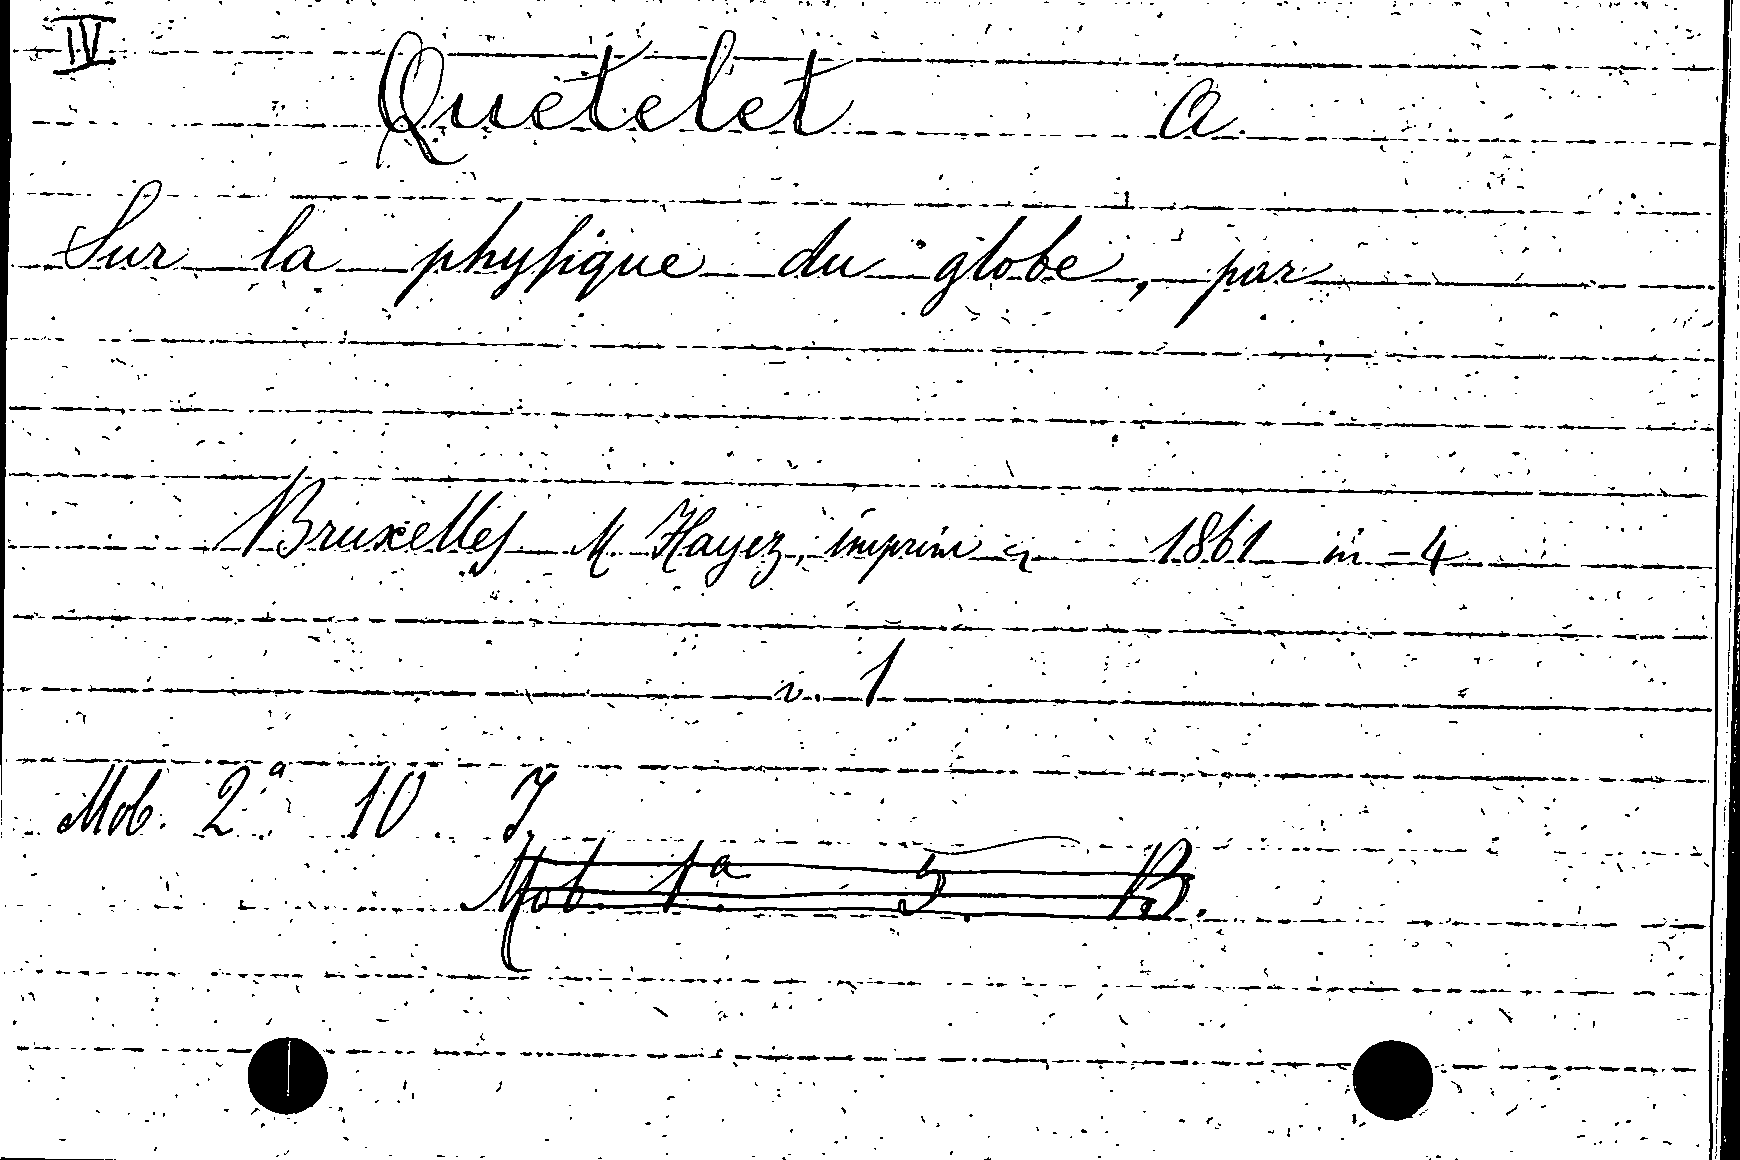 IV
Quetelet A.
Sur la physique du globe, par
Bruxelles M Hayez, imprim 1861 in-4
v. 1
Mob. 2a 10.
Mob. 1a 5. B.